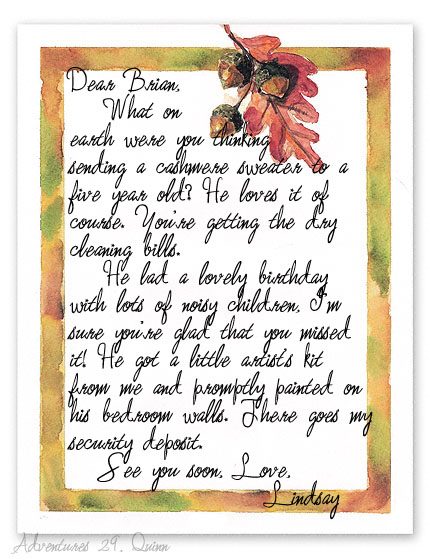 Dear Brian,
What on
earth were you thinking
sending a cashmere sweater to a
five year old? He loves it of
course. You're getting the dry
cleaning bills.
He had a lovely birthday
with lots of noisy children. I'm
sure you're glad that you missed
it! He got a little artist's kit
from me and promptly painted on
his bedroom walls. There goes my
security deposit.
See you soon. Love,
Lindsay
Adventures 29, Quinn